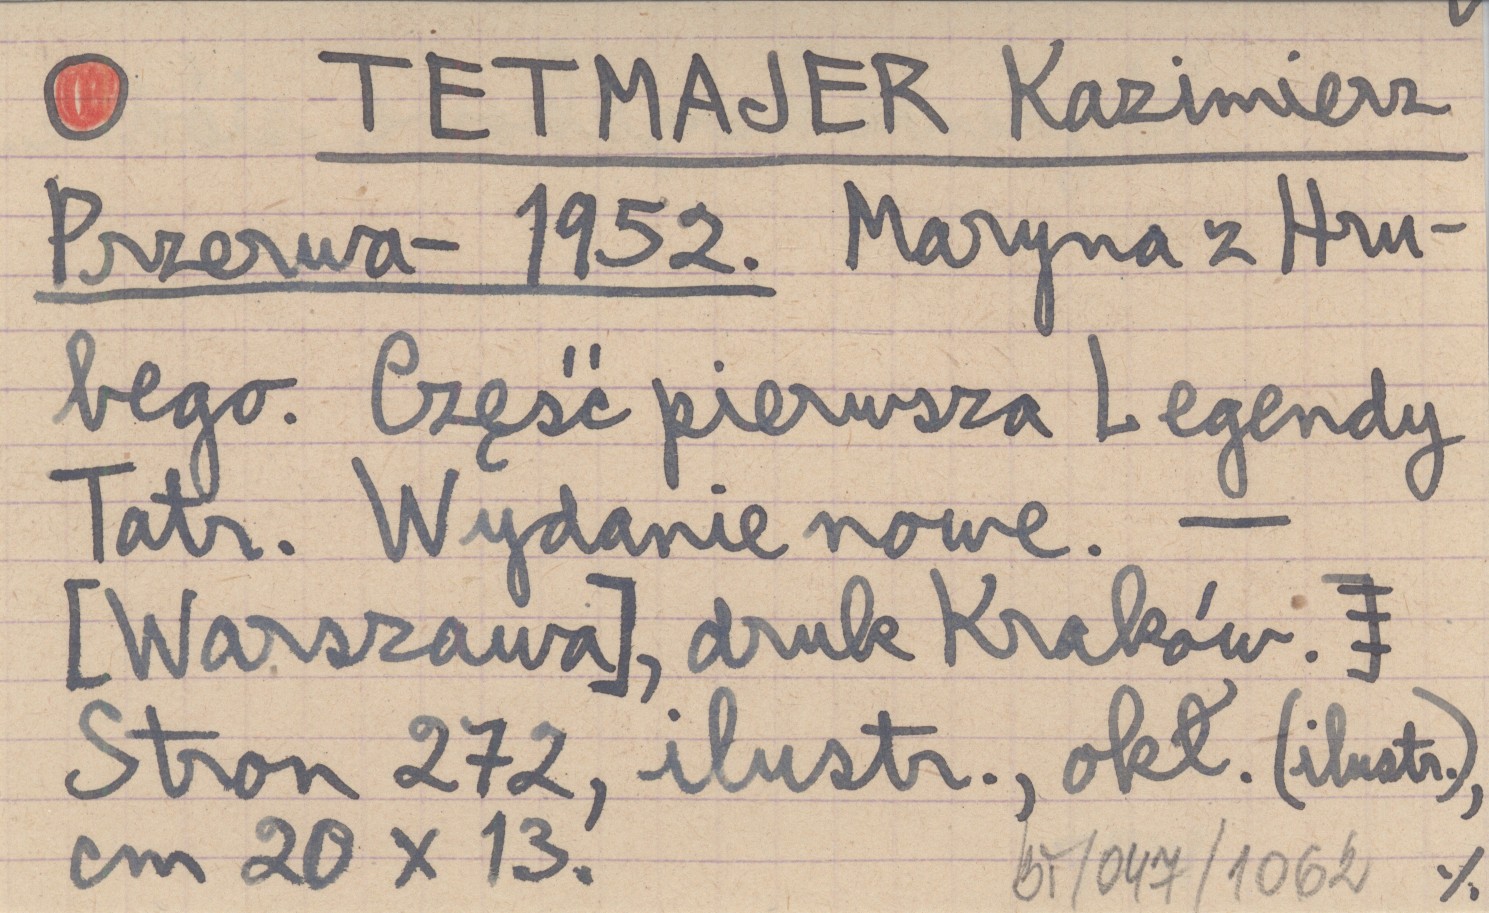 TETMAJER Kazimierz
Przerwa- 1952. Maryna z Hru-
bego. Część pierwsza Legendy
Tatr. Wydanie nowe. —
[Warszawa], druk Kraków.
Stron 272, ilustr., okł. (ilustr.),
cm 20 x 13.
/047/1062 ./.